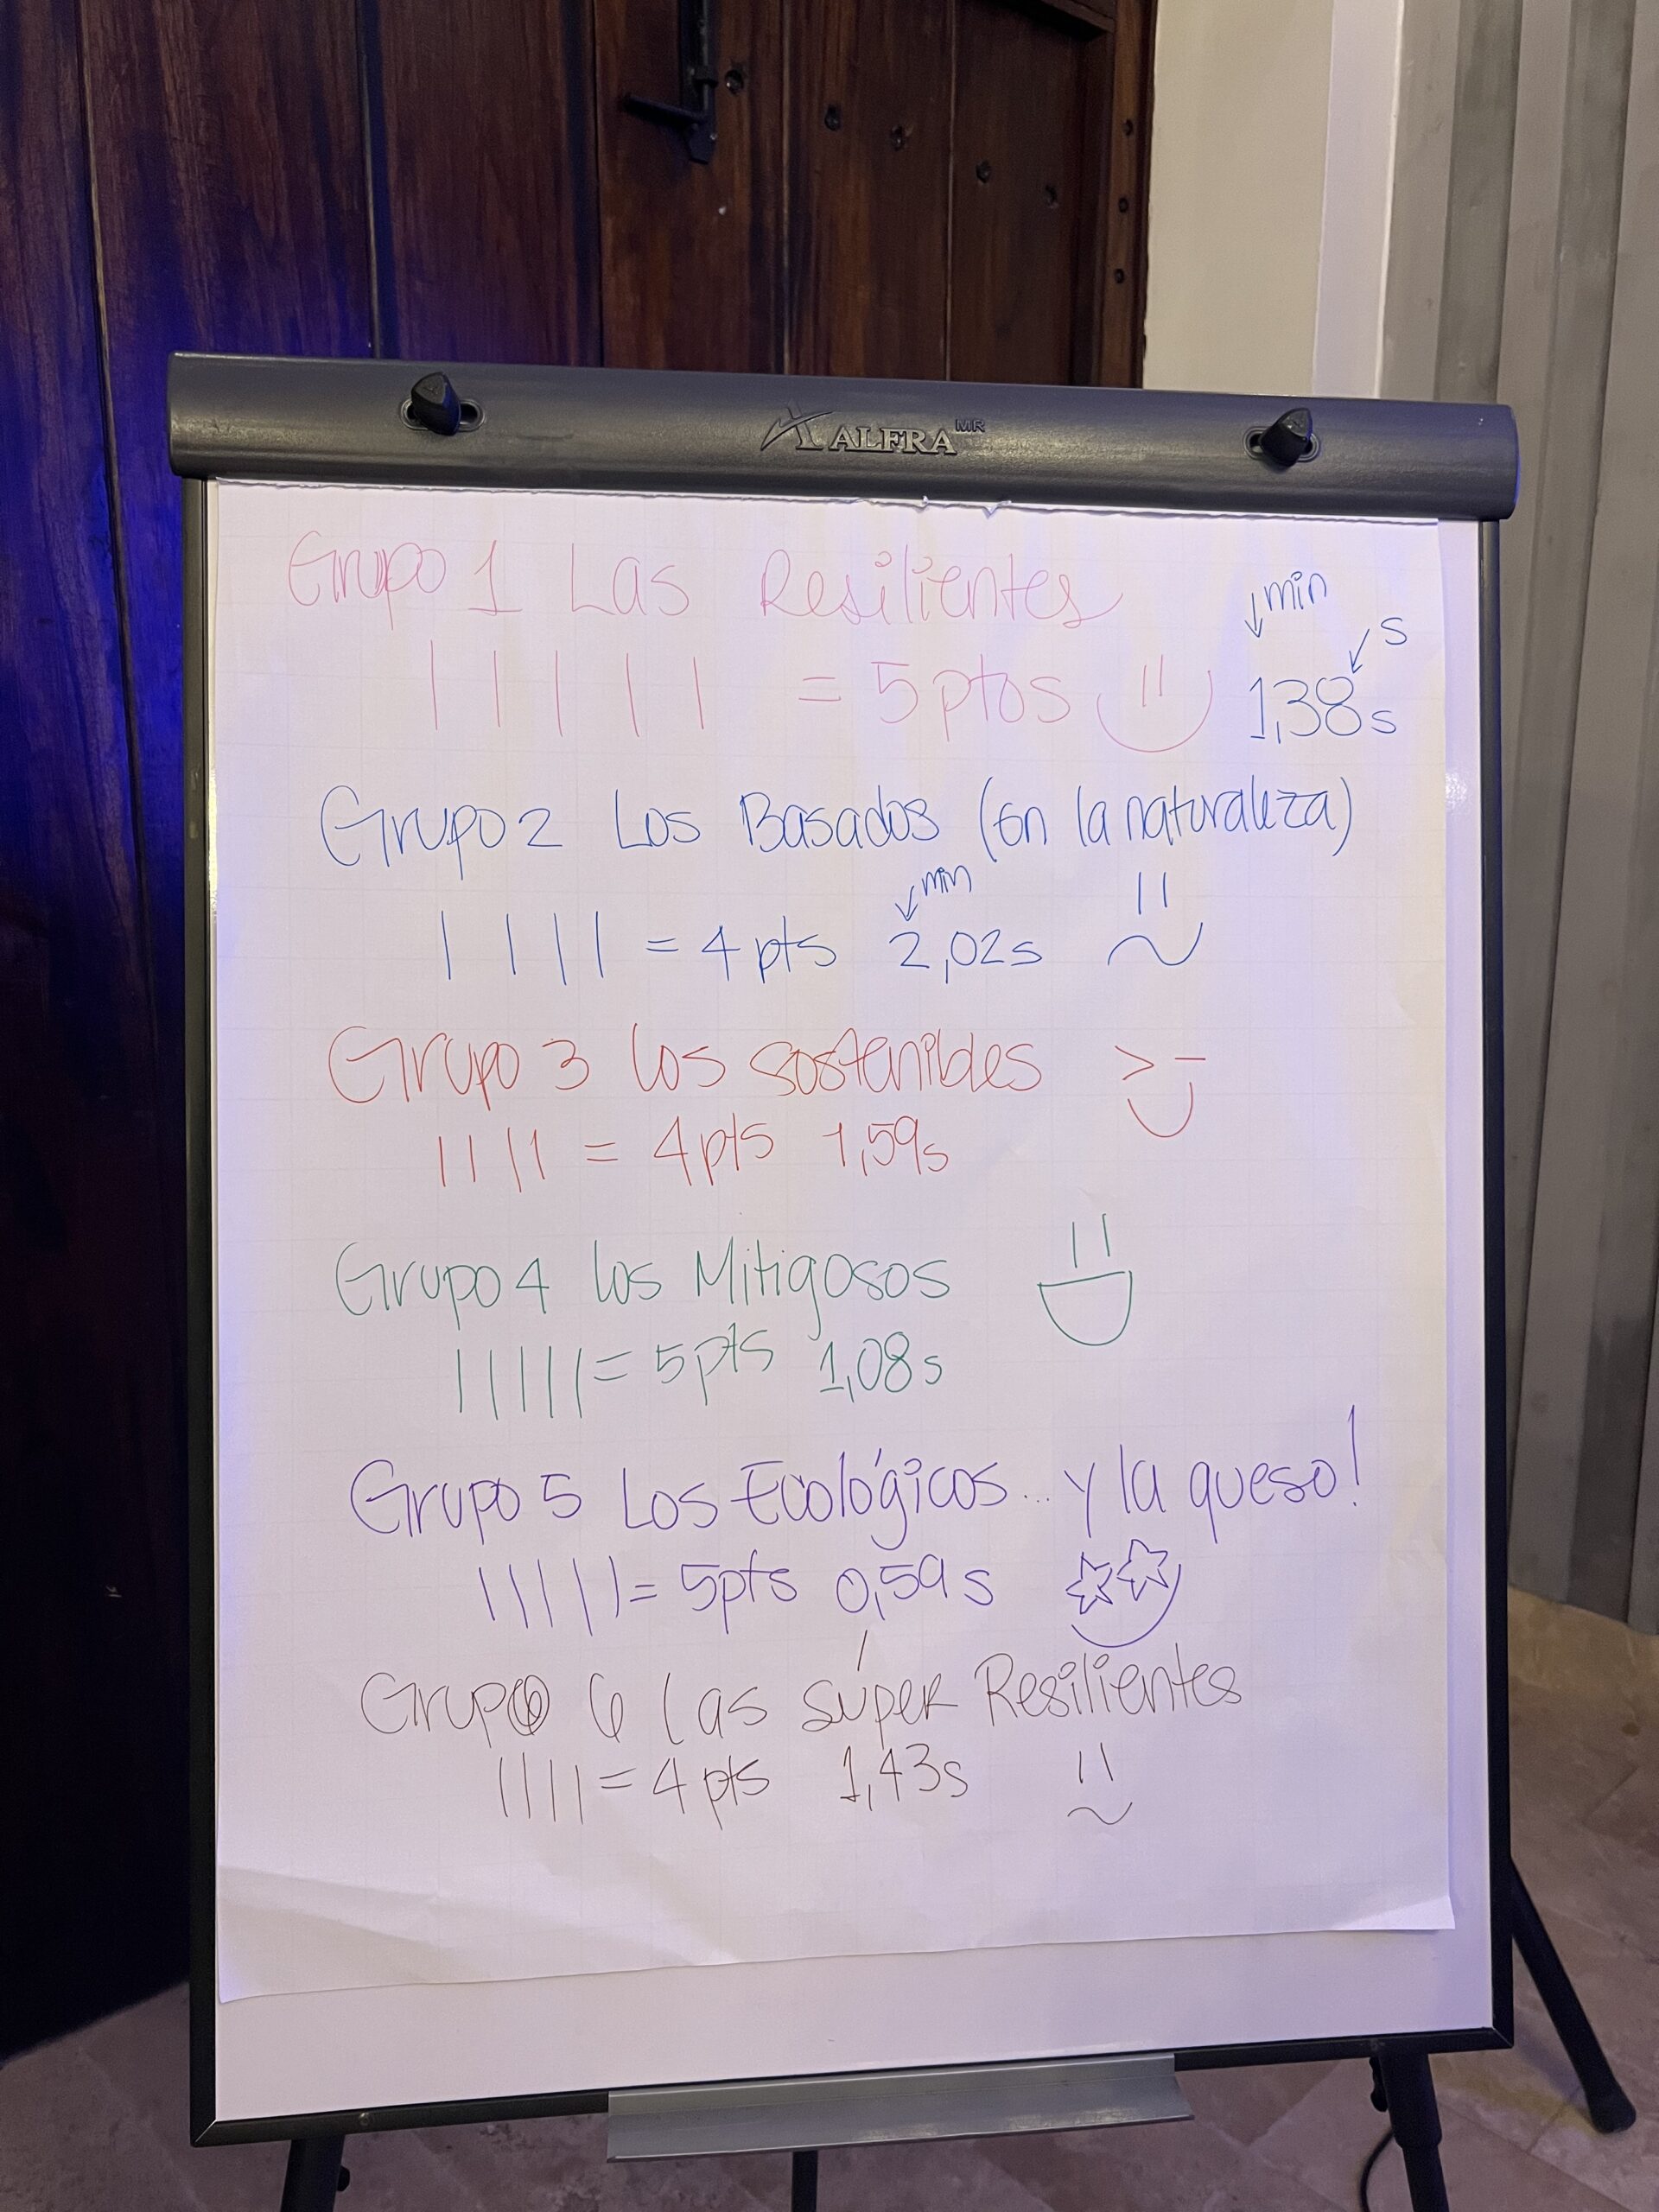 ALFRA MR
Grupo 1 Las Resilientes
| | | | | = 5 ptos 1,38s
min
s
Grupo 2 Los Basados (en la naturaleza)
min
| | | | = 4 pts 2,02s
Grupo 3 los sostenibles
| | | | = 4 pts 1,59s
Grupo 4 los Mitigosos
| | | | | = 5 pts 1,08s
Grupo 5 Los Ecológicos... y la queso!
| | | | | = 5 pts 0,59 s
Grupo 6 las súper Resilientes
| | | | = 4 pts 1,43s